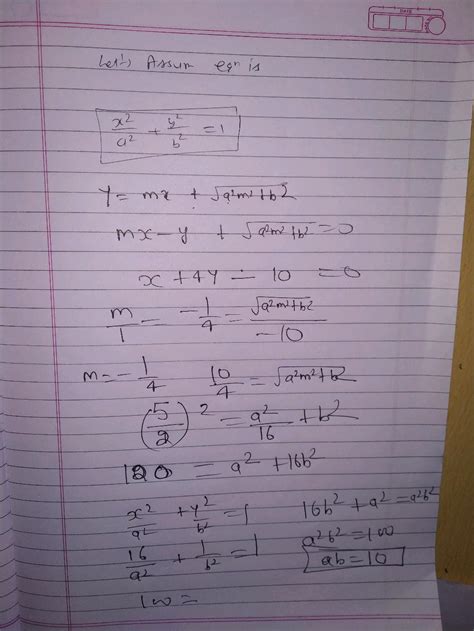 Let's Assum eqn is
x²/a² + y²/b² = 1
y = mx + √a²m²+b²
mx - y + √a²m²+b² = 0
x + 4y - 10 = 0
m/1 = -1/4 = √a²m²+b²/-10
m = -1/4    10/4 = √a²m²+b²
(5/2)² = a²/16 + b²
100 = a² + 16b²
x²/a² + y²/b² = 1    16b² + a² = a²b²
16/a² + 1/b² = 1    a²b² = 100
100 =    ab = 10